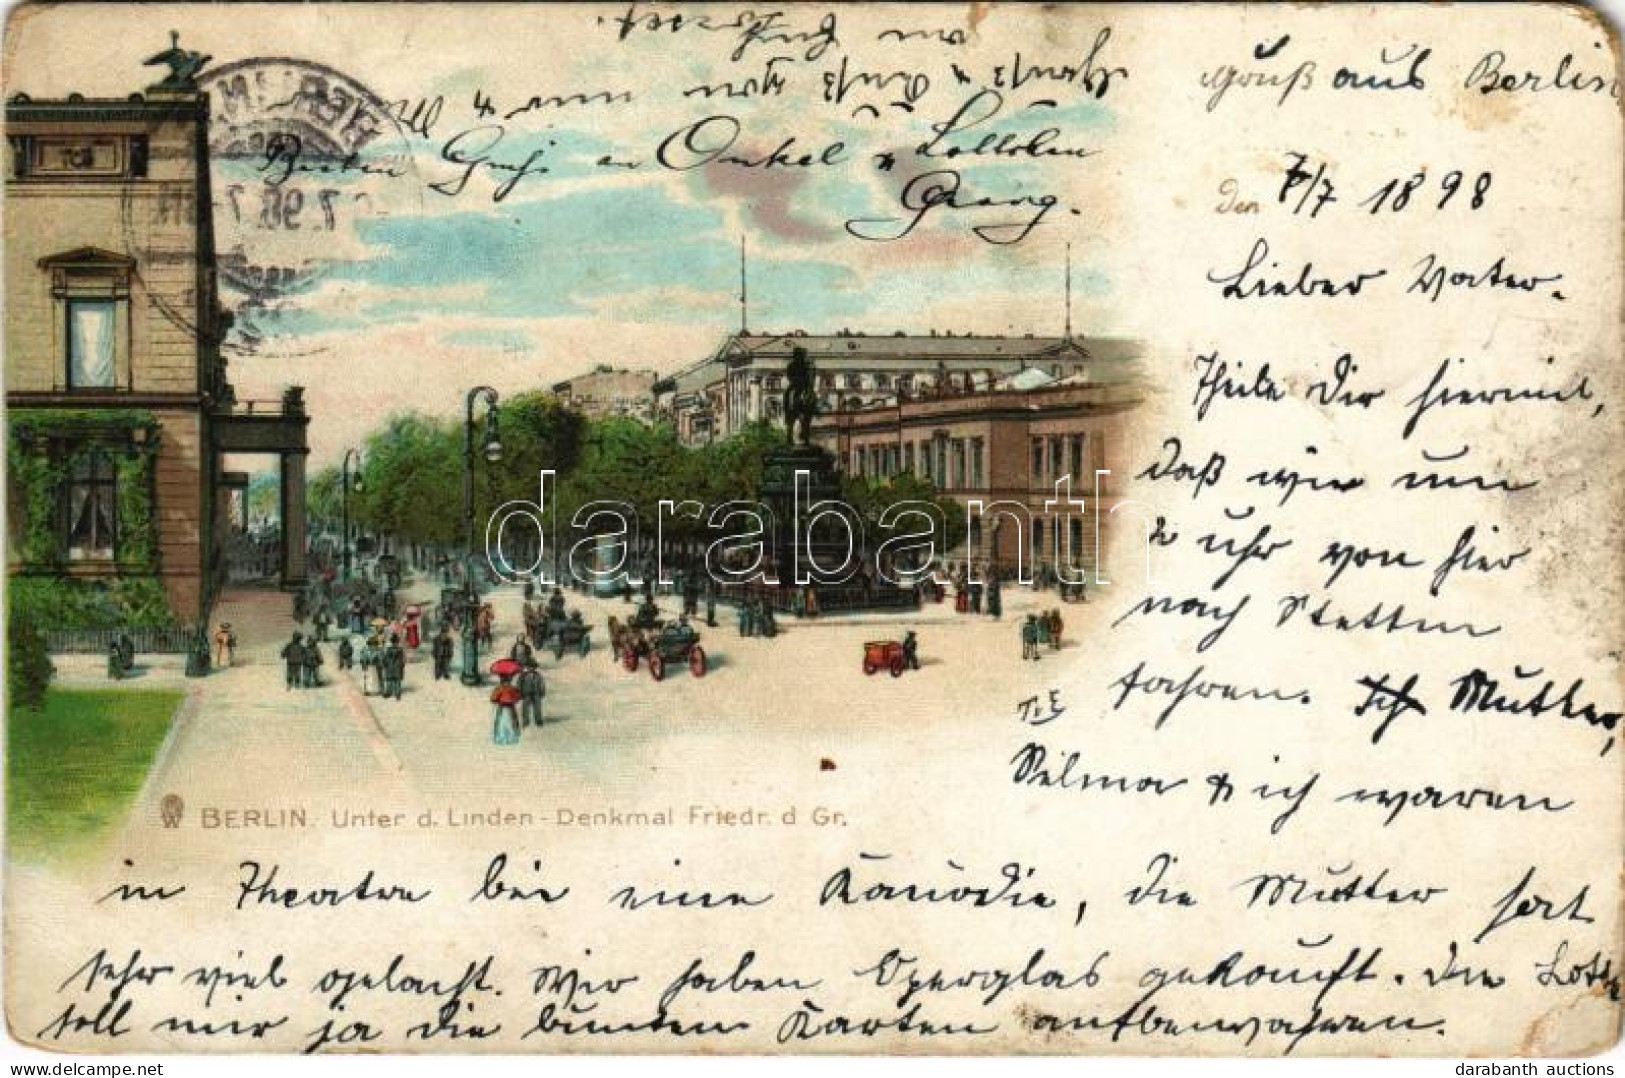 Gruß aus Berlin
Den 7/7 1898
Lieber Vater.
Theile Dir hiermit,
daß wir um
2 Uhr von hier
nach Stettin
fahren. Ich Mutter,
Selma & ich waren
in Theater bei eine Kömodie, die Mutter hat
sehr viel gelacht. Wir haben Operglas gekauft. Die Lotte
soll mir ja die bunten Karten aufbewahren.
Besten Gruß an Onkel u Lottchen
Georg.
Gruß u Kuß von
BERLIN. Unter d. Linden - Denkmal Friedr. d Gr.
darabanth
darabanth auctions